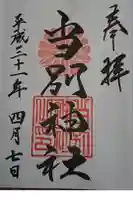 奉拝
当別神社
平成三十一年四月七日